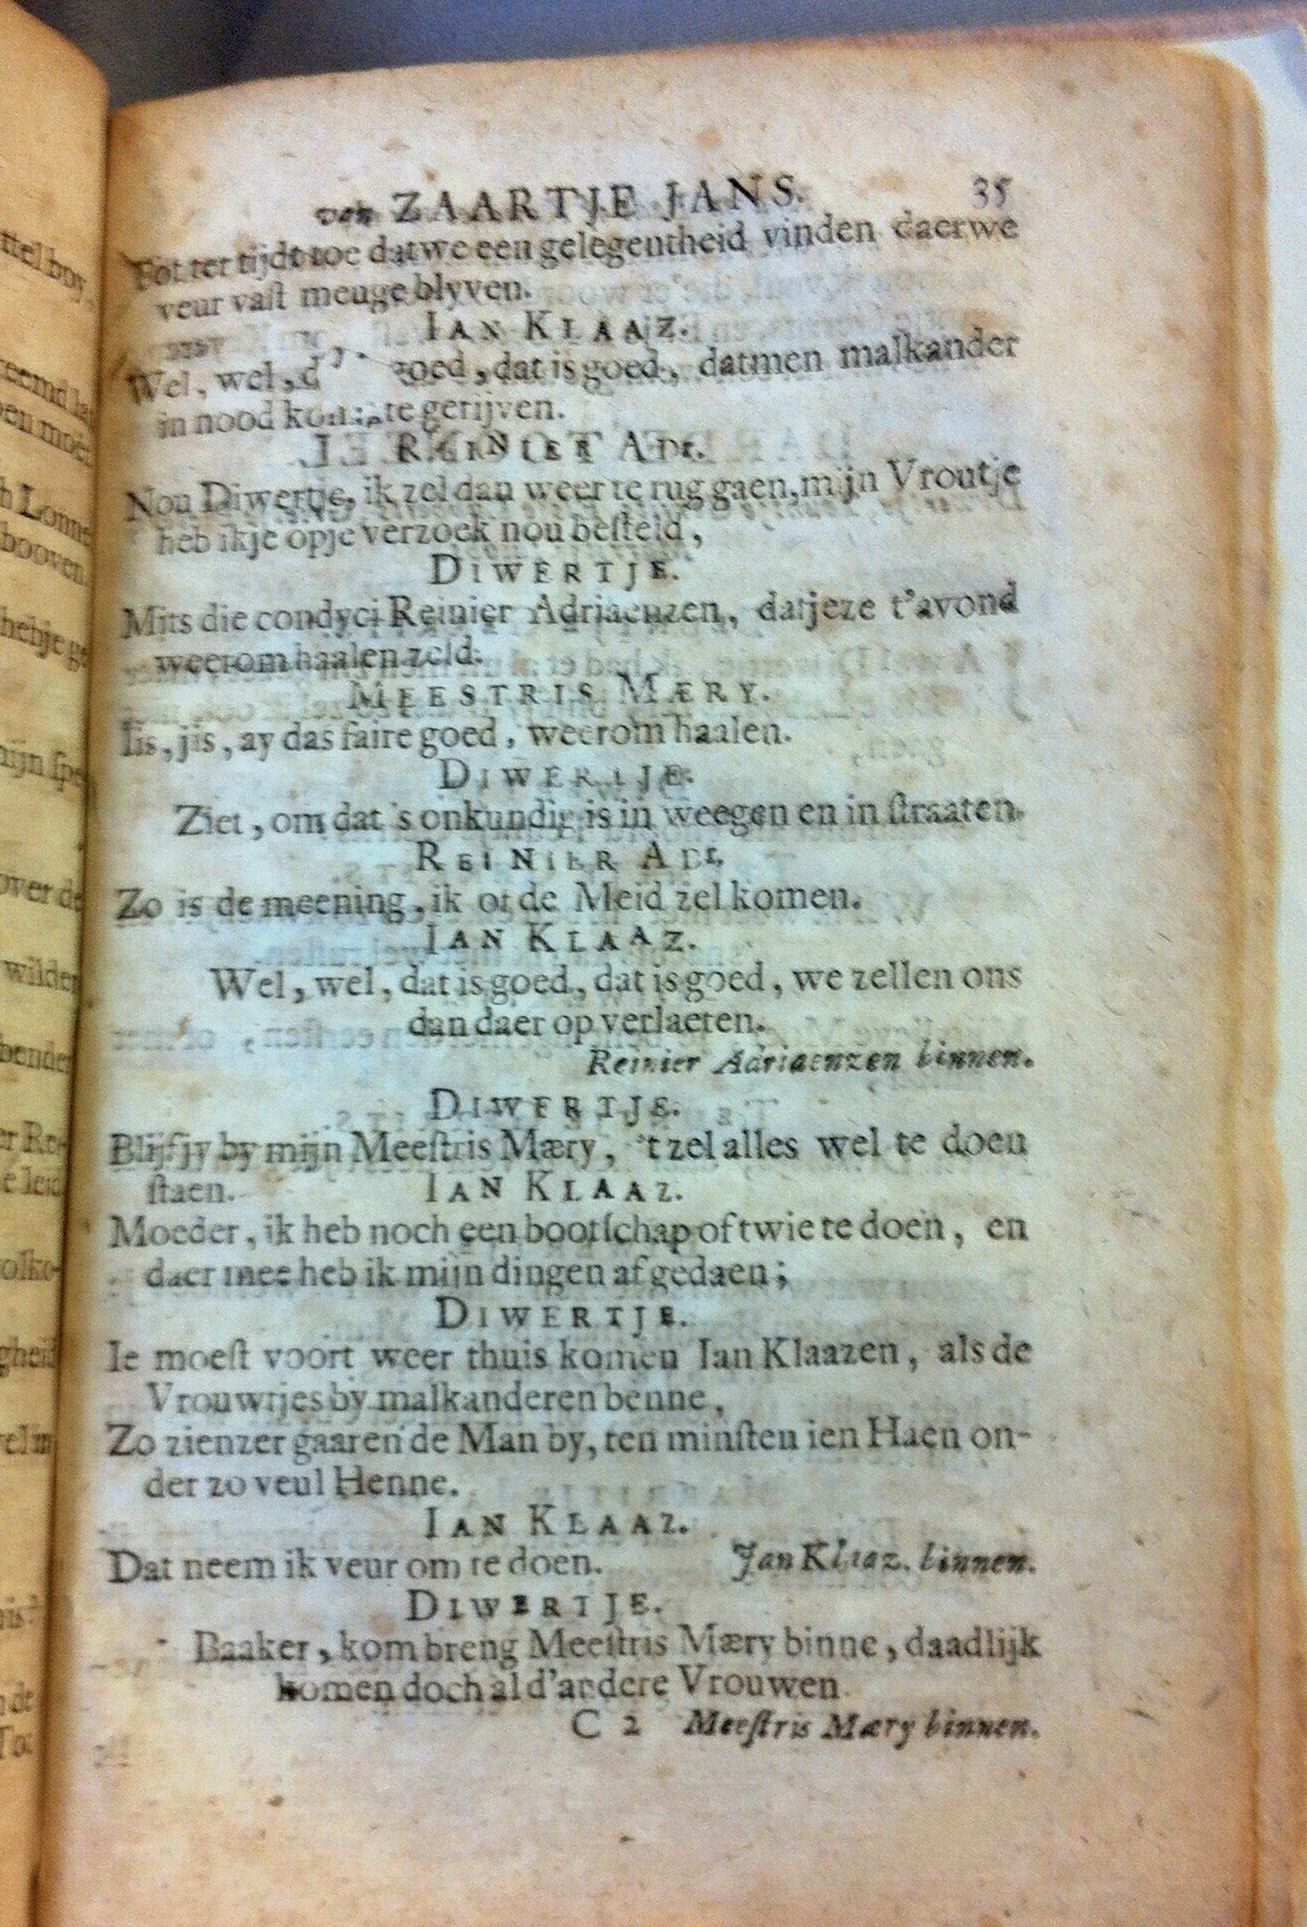 van ZAARTJE JANS. 35
Tot ter tijdt toe datwe een gelegentheid vinden daerwe
veur vaſt meuge blyven.
IAN KLAAZ.
Wel, wel, goed, dat is goed, datmen malkander
in nood te gerijven.
REINIER ADR.
Nou Diwertje, ik zel dan weer te rug gaen, mijn Vroutje
heb ikje opje verzoek nou beſteld,
DIWERTJE.
Mits die condyci Reinier Adriaenzen, datjeze t'avond
weerom haalen zeld.
MEESTRIS MÆRY.
Iis, jis, ay das faire goed, weerom haalen.
DIWERTJE.
Ziet, om dat 's onkundig is in weegen en in ſtraaten.
REINIER ADR.
Zo is de meening, ik of de Meid zel komen.
IAN KLAAZ.
Wel, wel, dat is goed, dat is goed, we zellen ons
dan daer op verlaeten.
Reinier Adriaenzen binnen.
DIWERTJE.
Blijf jy by mijn Meeſtris Mæry, 't zel alles wel te doen
ſtaen. IAN KLAAZ.
Moeder, ik heb noch een bootſchap of twie te doen, en
daer mee heb ik mijn dingen af gedaen;
DIWERTJE.
Ie moeſt voort weer thuis komen Ian Klaazen, als de
Vrouwtjes by malkanderen benne,
Zo zienzer gaaren de Man by, ten minſten ien Haen on-
der zo veul Henne.
IAN KLAAZ.
Dat neem ik veur om te doen. Jan Klaaz. binnen.
DIWERTJE.
Baaker, kom breng Meeſtris Mæry binne, daadlijk
komen doch al d'andere Vrouwen.
C 2 Meeſtris Mæry binnen.